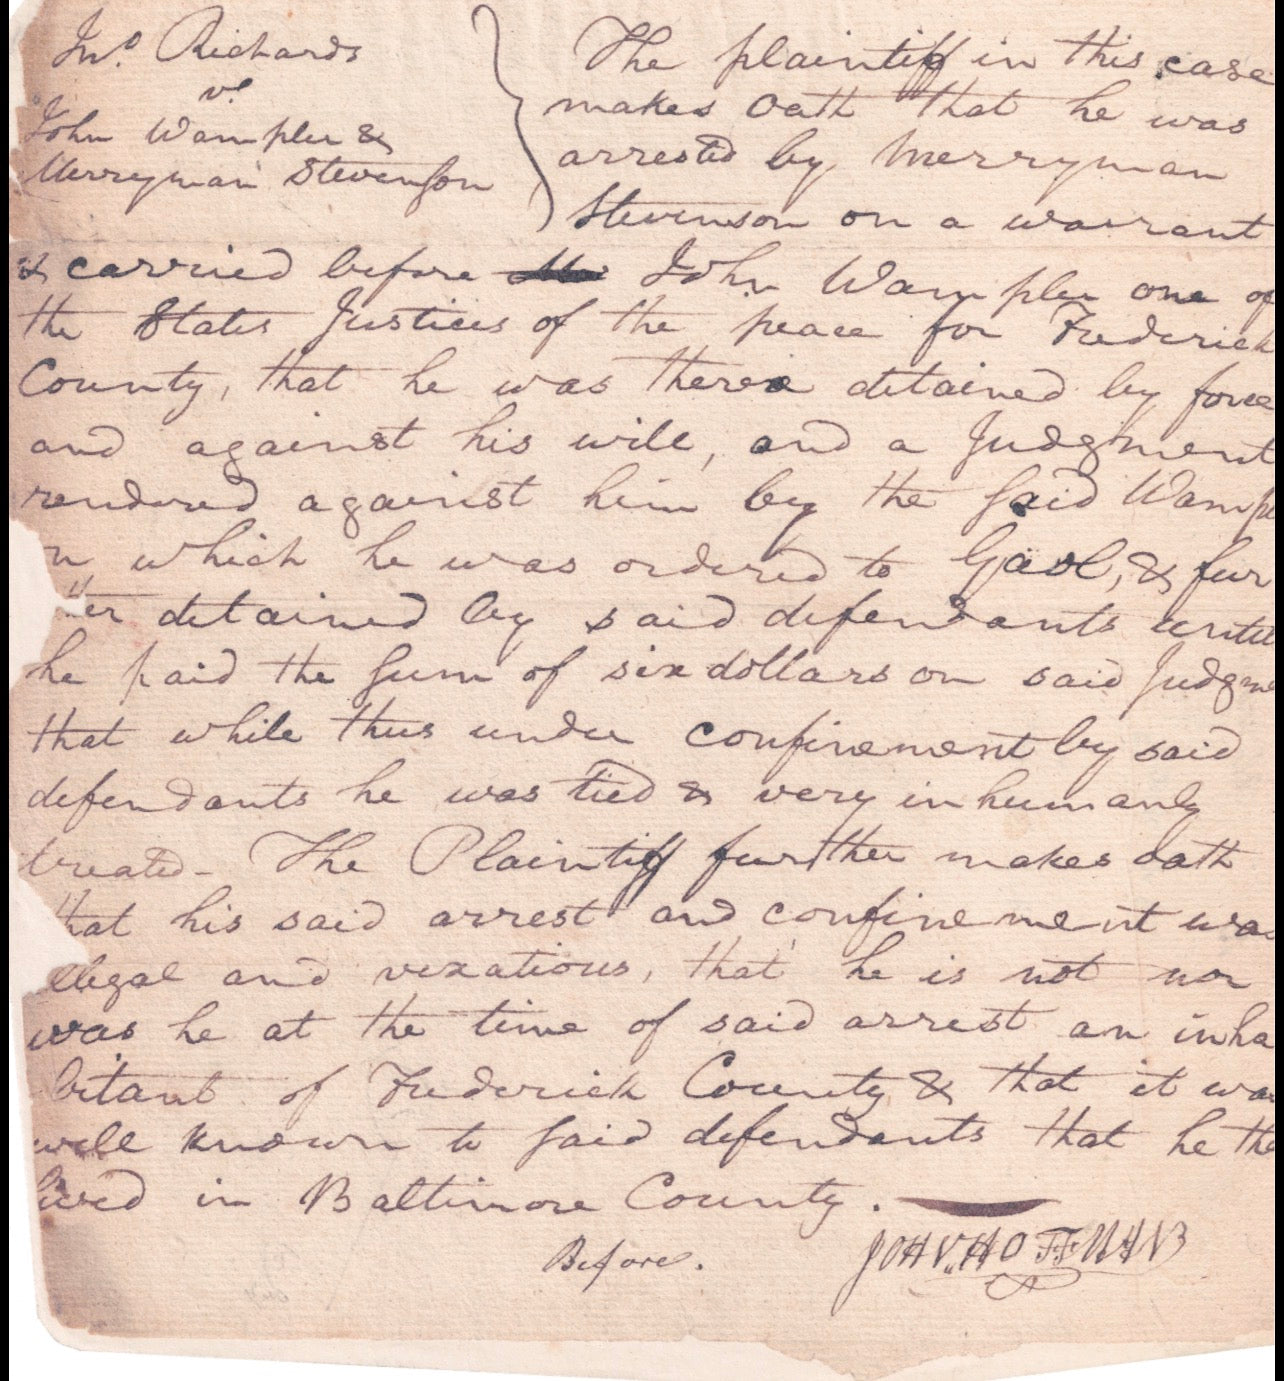 Jno. Richards
vs
John Wampler &
Merryman Stevenson
The plaintiff in this case
makes Oath that he was
arrested by Merryman
Stevenson on a warrant
& carried before John Wampler one of
the States Justices of the peace for Frederick
County, that he was there detained by force
and against his will, and a Judgment
rendered against him by the said Wampl
n which he was ordered to Gaol, & fur
ther detained by said defendants until
he paid the sum of six dollars on said Judgme
that while thus under confinement by said
defendants he was tied & very inhumanly
treated - The Plaintiff further makes oath
that his said arrest and confinement was
illegal and vexatious, that he is not nor
was he at the time of said arrest an inha
bitant of Frederick County & that it was
well known to said defendants that he the
lived in Baltimore County.
Before.